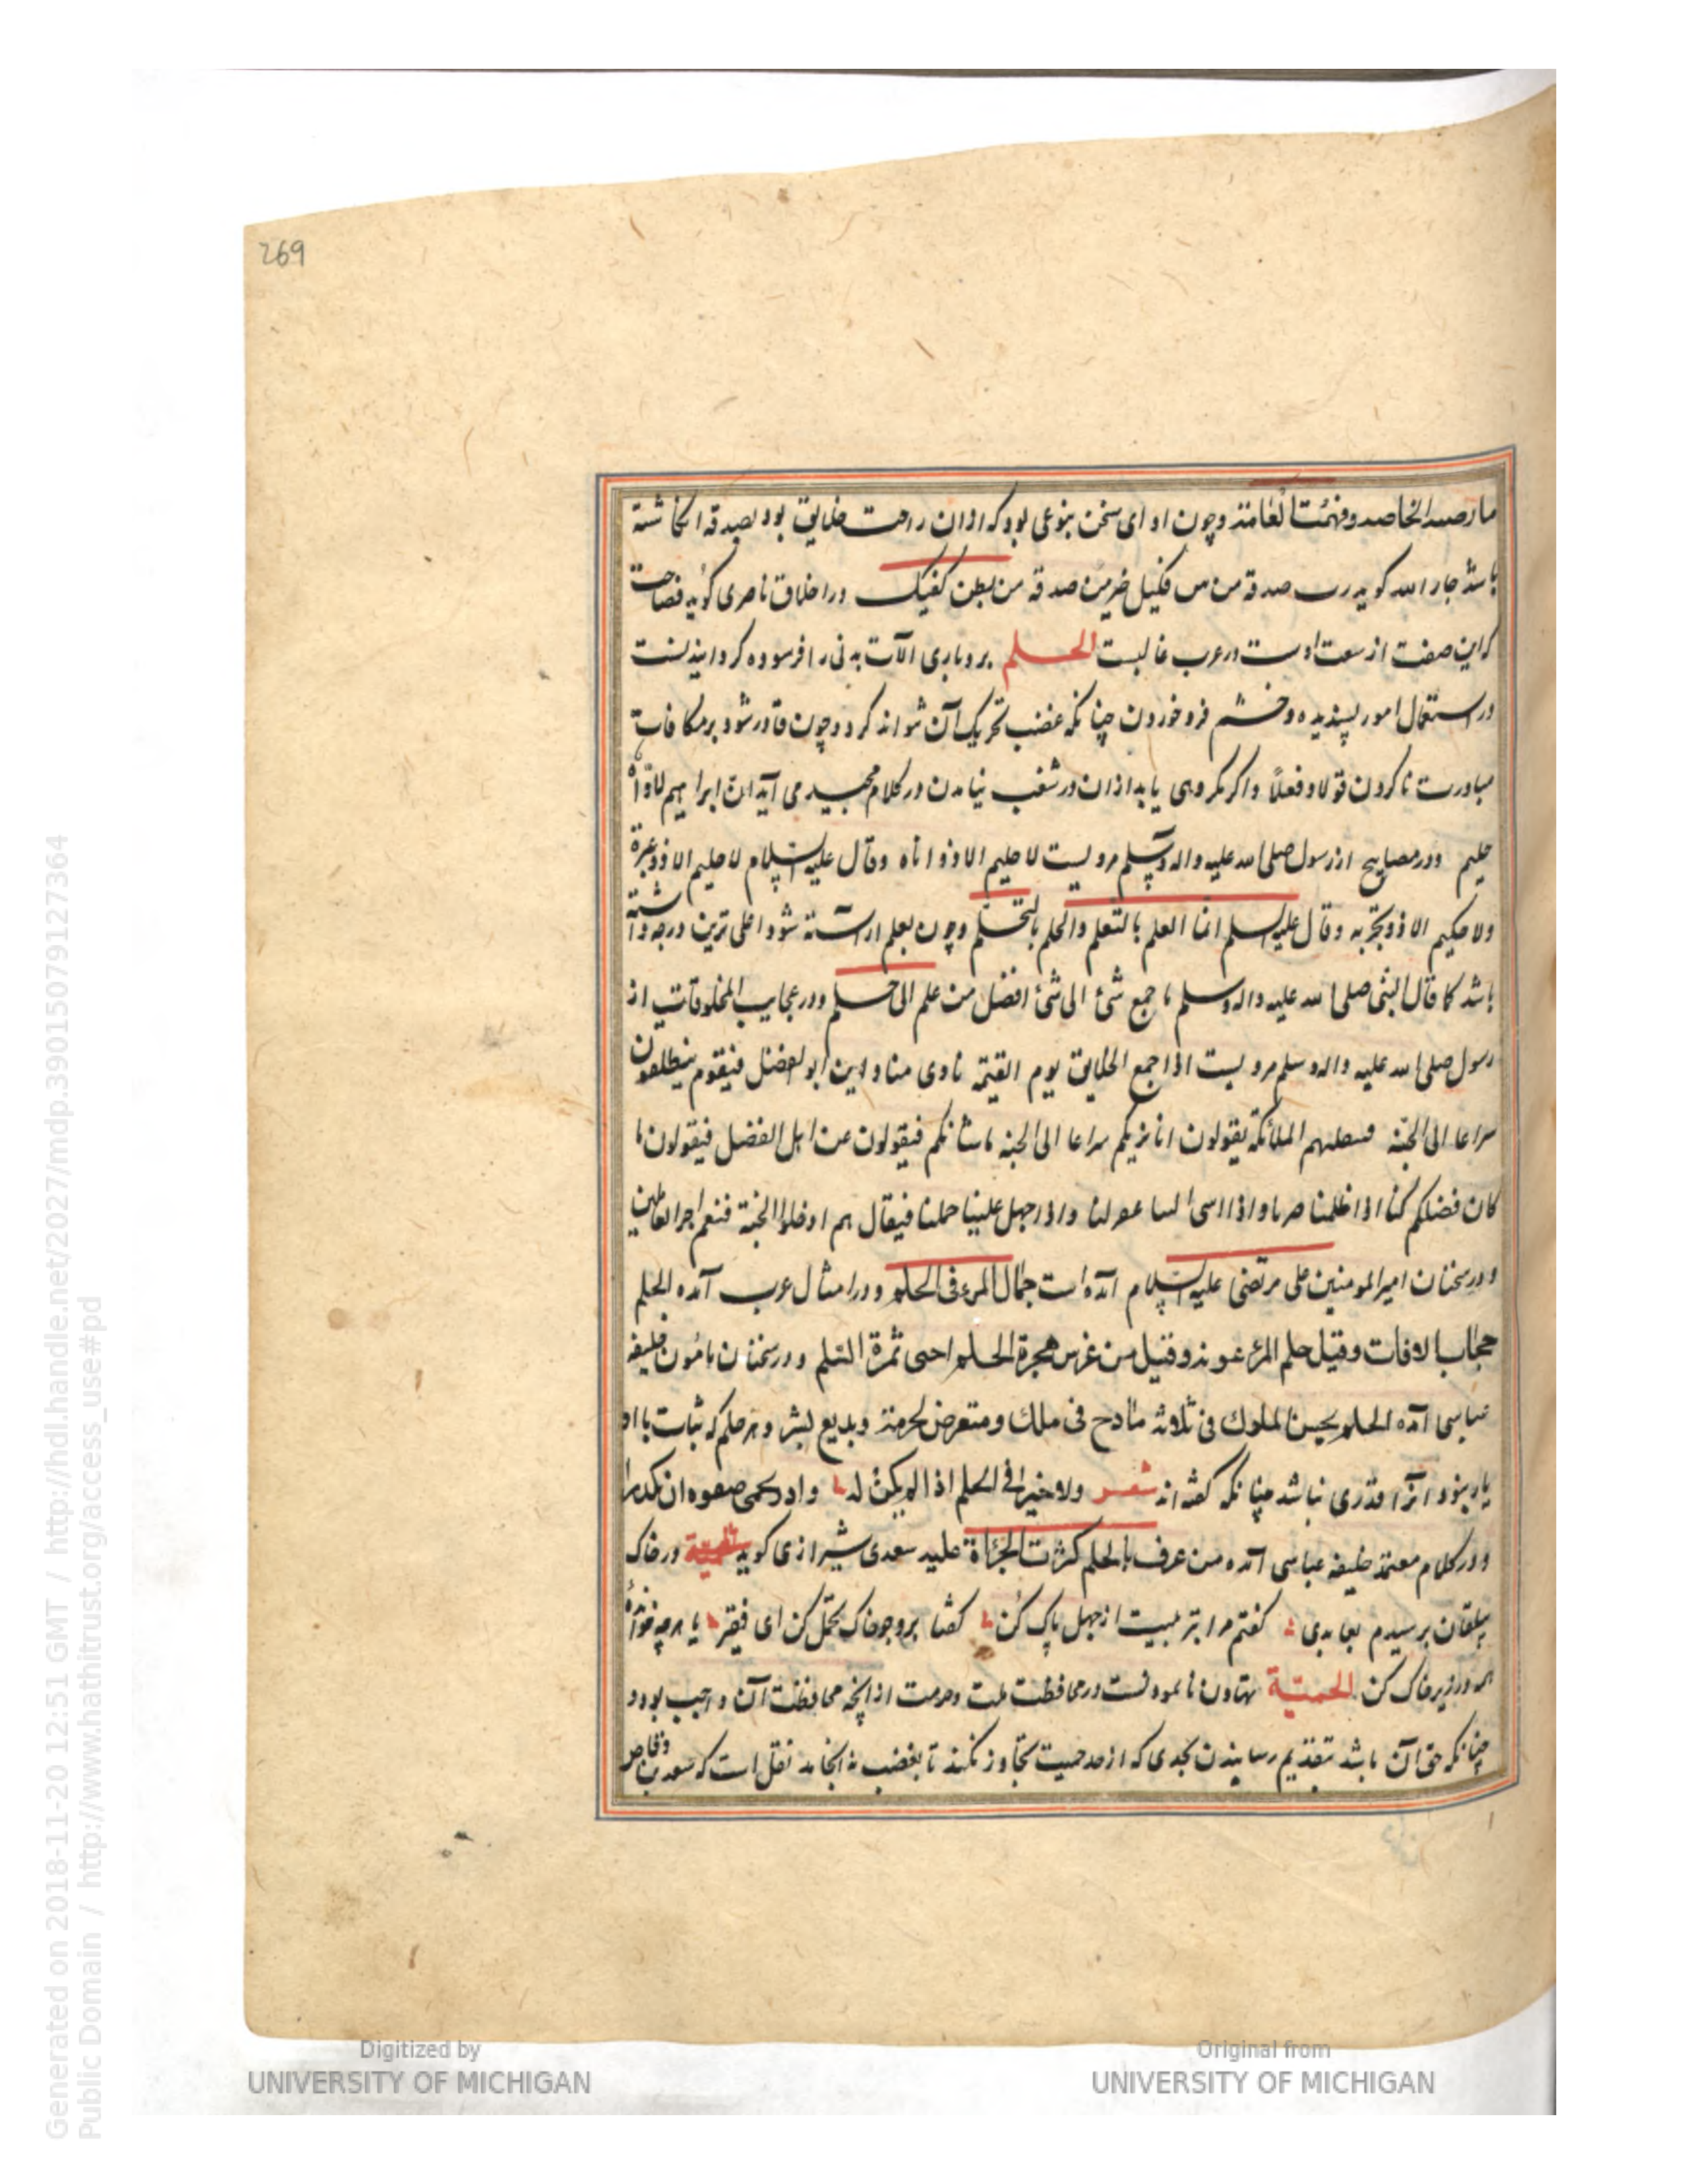 269
ما رضیه الخاصه وفهمته العامة وچون اوای سخن بنوعی بود که ازان راحت خلایق بود بصدقه انکاشته
باشد جار الله کوید رب صدقة من بین فکیک خیر من صدقة من بطن کفیک ودر اخلاق ناصری کوید فصاحت
که این صفت از سعت اوست در عرب غالبست الحلم بردباری آلات بدنی را فرسوده کردانیدنست
در استعمال امور پسندیده وخشم فرو خوردن چنانکه غضب تحریک آن نتواند کرد وچون قادر شود بر مکافات
مبادرت ناکردن قولا وفعلاً واکر مکروهی یابد ازان در شغب نیامدن در کلام مجید می آید ان ابراهیم لاوّاه
حلیم ودر مصابیح از رسول صلی الله علیه واله وسلم مرویست لا حلیم الا ذو اناه وقال علیه السلام لا حلیم الا ذو عثرة
ولا حکیم الا ذو تجربه وقال علیه السلم انما العلم بالتعلم والحلم بالتحلم وچون بعلم آراسته شود اعلی ترین درجه داشته
باشد کما قال النبی صلی الله علیه واله وسلم ما جمع شئ الی شئ افضل من علم الی حلم ودر عجایب المخلوقات از
رسول صلی الله علیه واله وسلم مرویست اذا جمع الخلایق یوم القیمة نادی مناد این ابو الفضل فیقوم ینطلقون
سراعا الی الجنّه الملائکة یقولون انا نریکم سراعا الی الجنه ما شانکم فیقولون نحن اهل الفضل فیقولون ما
کان فضلکم کنا اذا ظلمنا صبرنا واذا اسی الینا واذا جهل علینا حملنا فیقال لهم ادخلوا الجنة فنعم اجر العاملین
ودر سخنان امیر المومنین علی مرتضی علیه السلام آمده است جمال المرء فی الحلم ودر امثال عرب آمده الحلم
حجاب الافات وقیل حلم المرء عونه وقیل من غرس شجرة الحلم اجتنی ثمرة السلم ودر سخنان مامون خلیفه
عباسی آمده الحلم یحسن الملوک فی ثلاثة قادح فی ملک ومتعرض لحرمة ومذیع لسر وهر حلم که ثبات با او
یار نبود آنرا قدری نباشد چنانکه کفته اند شعر ولا خیر فی الحلم اذا لم یکن له بوادر تحمی صفوه ان یکدرا
ودر کلام معتمد خلیفه عباسی آمده من عرف بالحلم کثرت الجرأة علیه سعدی شیرازی کوید در خاک
بیلقان برسیدم بعابدی کفتم مرا بتربیت از جهل پاک کن کفتا برو چو خاک تحمّل کن ای فقیر یا هرچه خواندهٔ
همه در زیر خاک کن الحمیّة تهاون نانمودنست در محافظت ملت وحرمت از آنچه محافظت آن واجب بود و
چنانکه حق آن باشد بتقدیم رسانیدن بحدی که از حد حمیت تجاوز نکند تا بغضب نه انجامد نقل است که سعد بن وقاص
Digitized by
UNIVERSITY OF MICHIGAN
Original from
UNIVERSITY OF MICHIGAN
Generated on 2018-11-20 12:51 GMT / http://hdl.handle.net/2027/mdp.39015079127364
Public Domain / http://www.hathitrust.org/access_use#pd